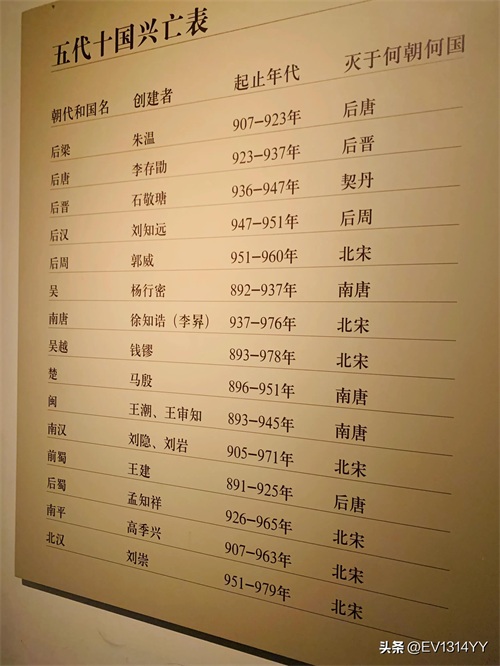 五代十国兴亡表
朝代和国名 创建者 起止年代 灭于何朝何国
后梁 朱温 907-923年 后唐
后唐 李存勖 923-937年 后晋
后晋 石敬瑭 936-947年 契丹
后汉 刘知远 947-951年 后周
后周 郭威 951-960年 北宋
吴 杨行密 892-937年 南唐
南唐 徐知诰（李昪） 937-976年 北宋
吴越 钱镠 893-978年 北宋
楚 马殷 896-951年 南唐
闽 王潮、王审知 893-945年 南唐
南汉 刘隐、刘岩 905-971年 北宋
前蜀 王建 891-925年 后唐
后蜀 孟知祥 926-965年 北宋
南平 高季兴 907-963年 北宋
北汉 刘崇 951-979年 北宋
头条 @EV1314YY